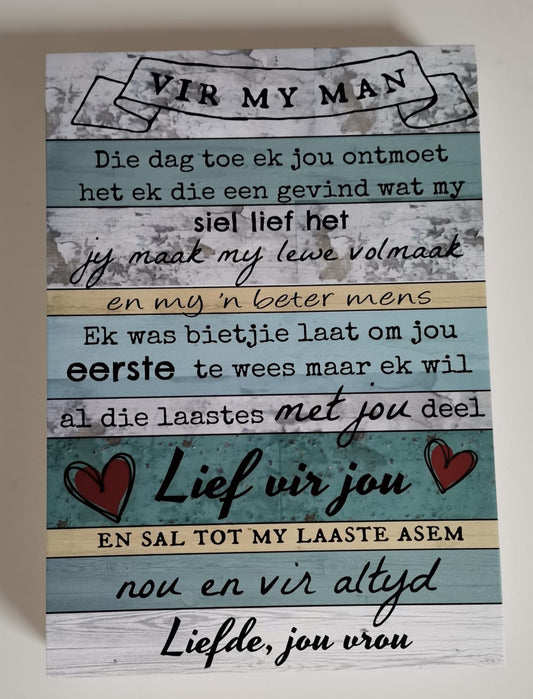 VIR MY MAN
Die dag toe ek jou ontmoet
het ek die een gevind wat my
siel lief het
jy maak my lewe volmaak
en my 'n beter mens
Ek was bietjie laat om jou
eerste te wees maar ek wil
al die laastes met jou deel
Lief vir jou
EN SAL TOT MY LAASTE ASEM
nou en vir altyd
Liefde, jou vrou